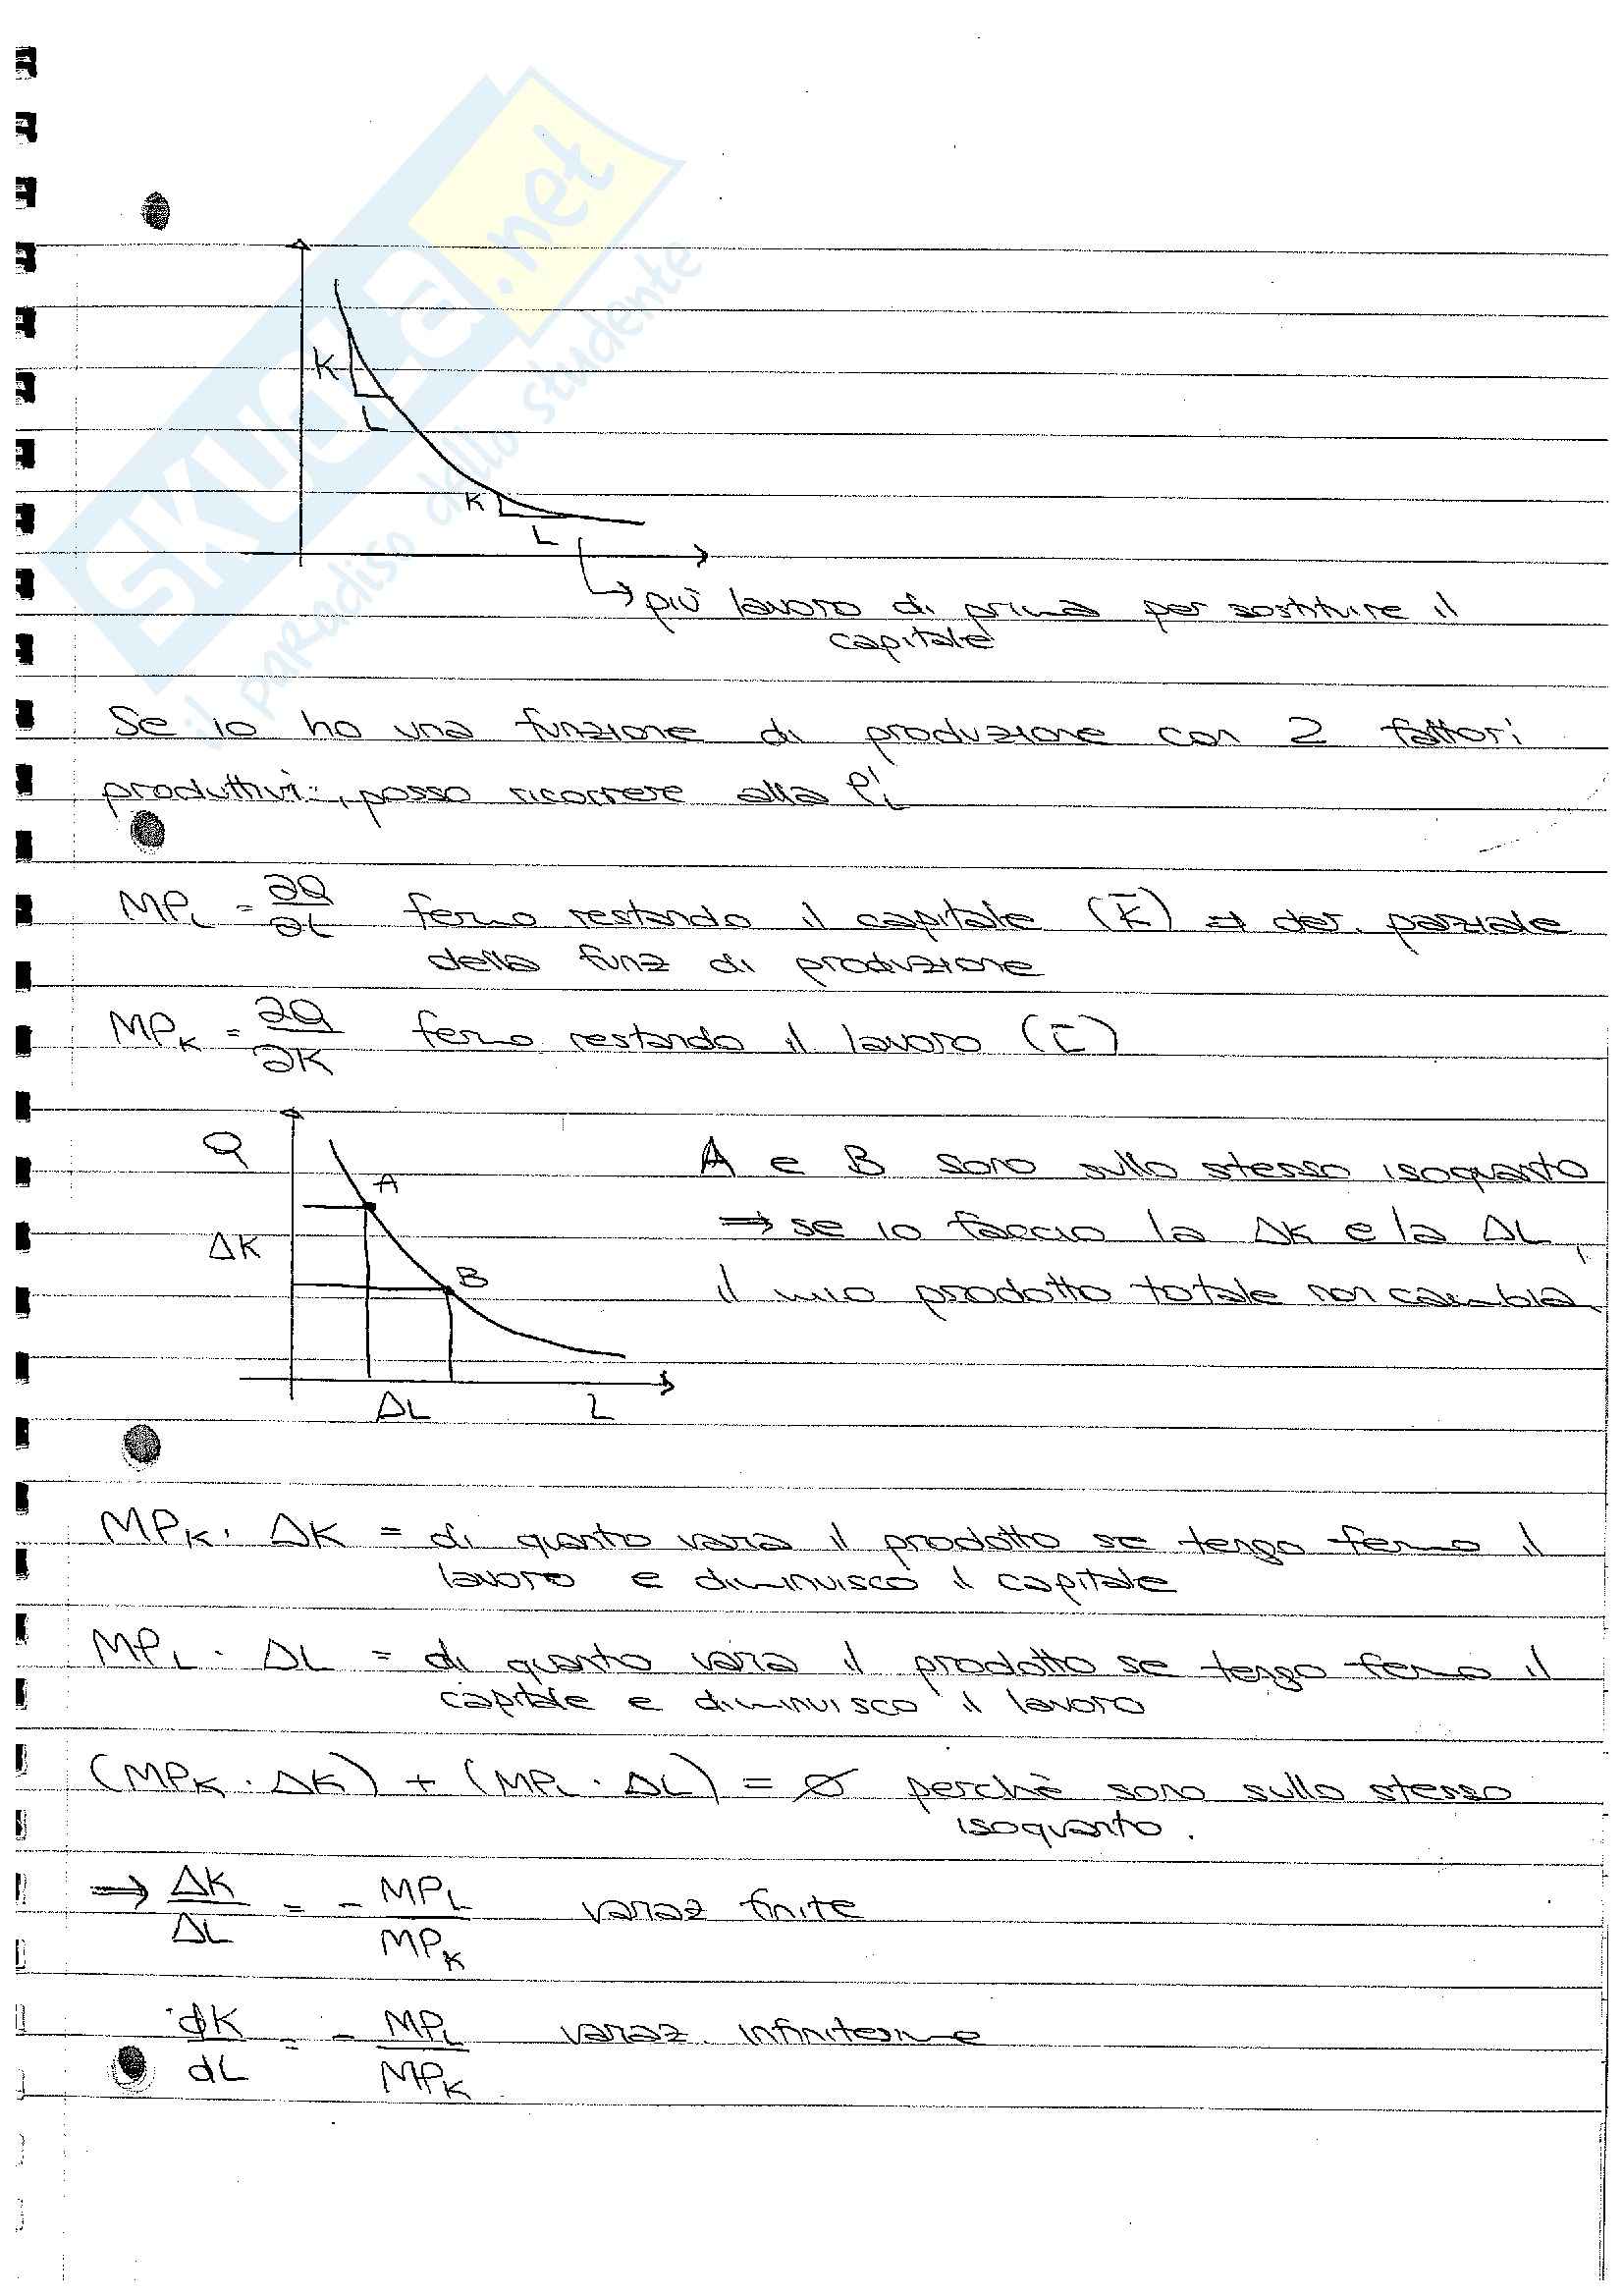 SKUOLA.net
il paradiso dello studente
K
L
K
L
→ più lavoro di prima per sostituire il
capitale
Se io ho una funzione di produzione con 2 fattori
produttivi, posso ricorrere alla
MP_L = ∂Q/∂L fermo restando il capitale (K̅) ⇒ der. parziale
della funz di produzione
MP_K = ∂Q/∂K fermo restando il lavoro (L̅)
Q
A
ΔK
B
ΔL
L
A e B sono sullo stesso isoquanto
⇒ se io faccio la ΔK e la ΔL,
il mio prodotto totale non cambia
MP_K · ΔK = di quanto varia il prodotto se tengo fermo il
lavoro e diminuisco il capitale
MP_L · ΔL = di quanto varia il prodotto se tengo fermo il
capitale e diminuisco il lavoro
(MP_K · ΔK) + (MP_L · ΔL) = Ø perchè sono sullo stesso
isoquanto.
⇒ ΔK/ΔL = - MP_L/MP_K variaz finite
dK/dL = - MP_L/MP_K variaz. infinitesime